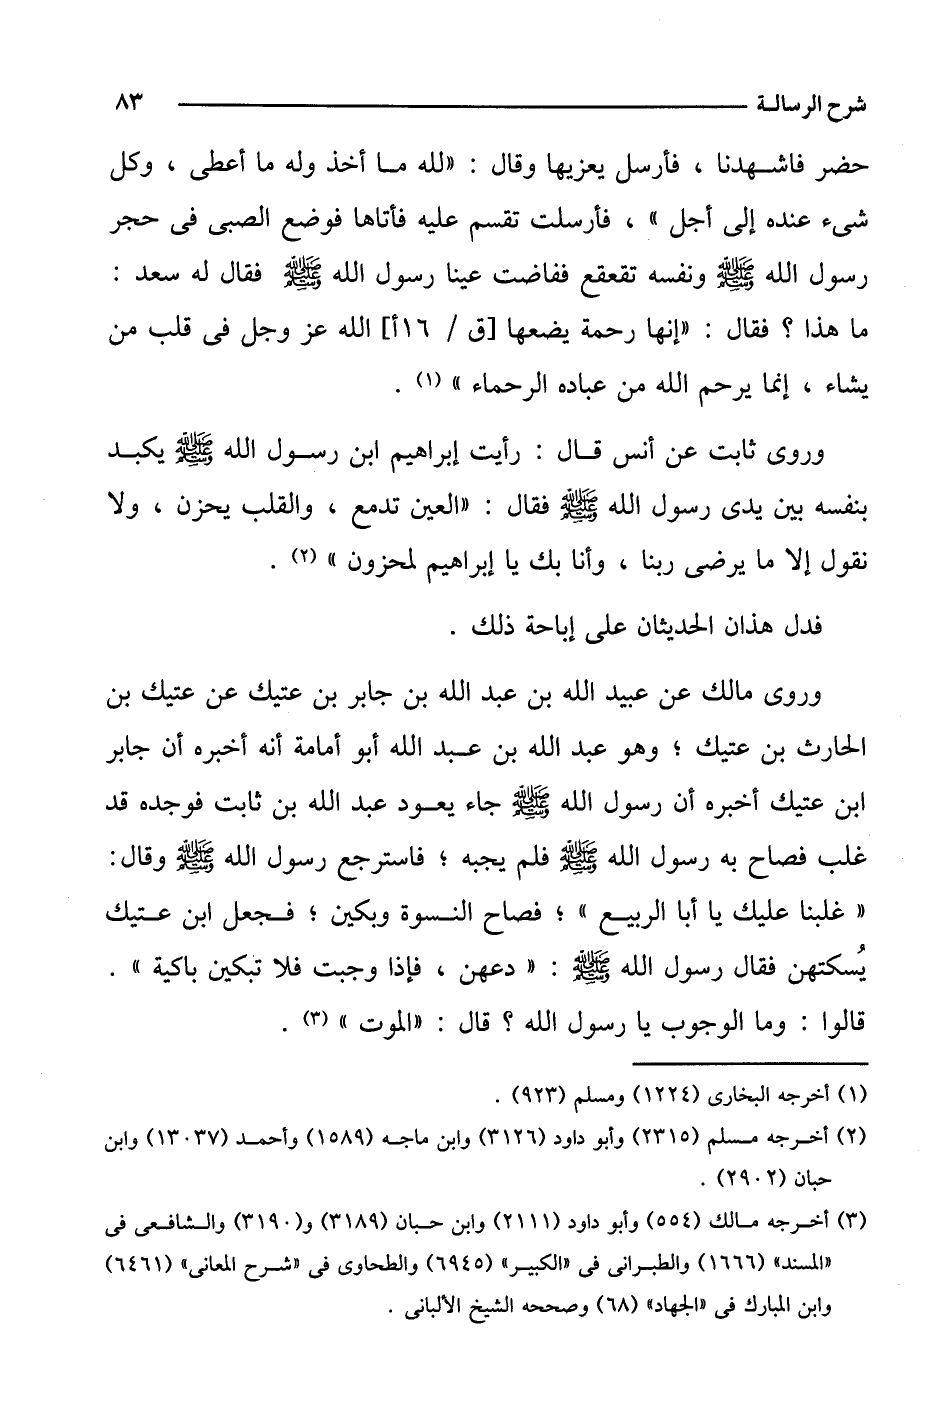 شرح الرسالة ٨٣
حضر فاشهدنا ، فأرسل يعزيها وقال : «لله ما أخذ وله ما أعطى ، وكل
شىء عنده إلى أجل » ، فأرسلت تقسم عليه فأتاها فوضع الصبى فى حجر
رسول الله ﷺ ونفسه تقعقع ففاضت عينا رسول الله ﷺ فقال له سعد :
ما هذا ؟ فقال : «إنها رحمة يضعها [ق / ١٦أ] الله عز وجل فى قلب من
يشاء ، إنما يرحم الله من عباده الرحماء » (١) .
وروى ثابت عن أنس قال : رأيت إبراهيم ابن رسول الله ﷺ يكبد
بنفسه بين يدى رسول الله ﷺ فقال : «العين تدمع ، والقلب يحزن ، ولا
نقول إلا ما يرضى ربنا ، وأنا بك يا إبراهيم لمحزون » (٢) .
فدل هذان الحديثان على إباحة ذلك .
وروى مالك عن عبيد الله بن عبد الله بن جابر بن عتيك عن عتيك بن
الحارث بن عتيك ؛ وهو عبد الله بن عبد الله أبو أمامة أنه أخبره أن جابر
ابن عتيك أخبره أن رسول الله ﷺ جاء يعود عبد الله بن ثابت فوجده قد
غلب فصاح به رسول الله ﷺ فلم يجبه ؛ فاسترجع رسول الله ﷺ وقال:
« غلبنا عليك يا أبا الربيع » ؛ فصاح النسوة وبكين ؛ فجعل ابن عتيك
يُسكتهن فقال رسول الله ﷺ : « دعهن ، فإذا وجبت فلا تبكين باكية » .
قالوا : وما الوجوب يا رسول الله ؟ قال : «الموت » (٣) .
(١) أخرجه البخارى (١٢٢٤) ومسلم (٩٢٣) .
(٢) أخرجه مسلم (٢٣١٥) وأبو داود (٣١٢٦) وابن ماجه (١٥٨٩) وأحمد (١٣٠٣٧) وابن
حبان (٢٩٠٢) .
(٣) أخرجه مالك (٥٥٤) وأبو داود (٢١١١) وابن حبان (٣١٨٩) و(٣١٩٠) والشافعى فى
«المسند» (١٦٦٦) والطبرانى فى «الكبير» (٦٩٤٥) والطحاوى فى «شرح المعانى» (٦٤٦١)
وابن المبارك فى «الجهاد» (٦٨) وصححه الشيخ الألبانى .